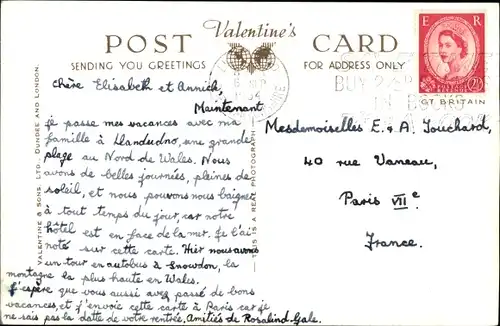 Valentine's
POST CARD
SENDING YOU GREETINGS
FOR ADDRESS ONLY
E R
POSTAGE
2½D
GT BRITAIN
BUY 2/6
IN BOOKS
VALENTINE & SONS, LTD., DUNDEE AND LONDON.
THIS IS A REAL PHOTOGRAPH
Chère Elisabeth et Annick,
Maintenant
je passe mes vacances avec ma
famille à Llandudno, une grande
plage au Nord de Wales. Nous
avons de belles journées, pleines de
soleil, et nous pouvons nous baigner
à tout temps du jour, car notre
hôtel est en face de la mer. Je l'ai
noté sur cette carte. Hier nous avons
un tour en autobus à Snowdon, la
montagne la plus haute en Wales.
J'espère que vous aussi avez passé de bons
vacances, et j'envoie cette carte à Paris car je
ne sais pas la datte de votre rentrée, Amitiés de Rosalind Gale.
Mesdemoiselles E. & A. Jouchard,
40 rue Vaneau,
Paris VIIe
France.